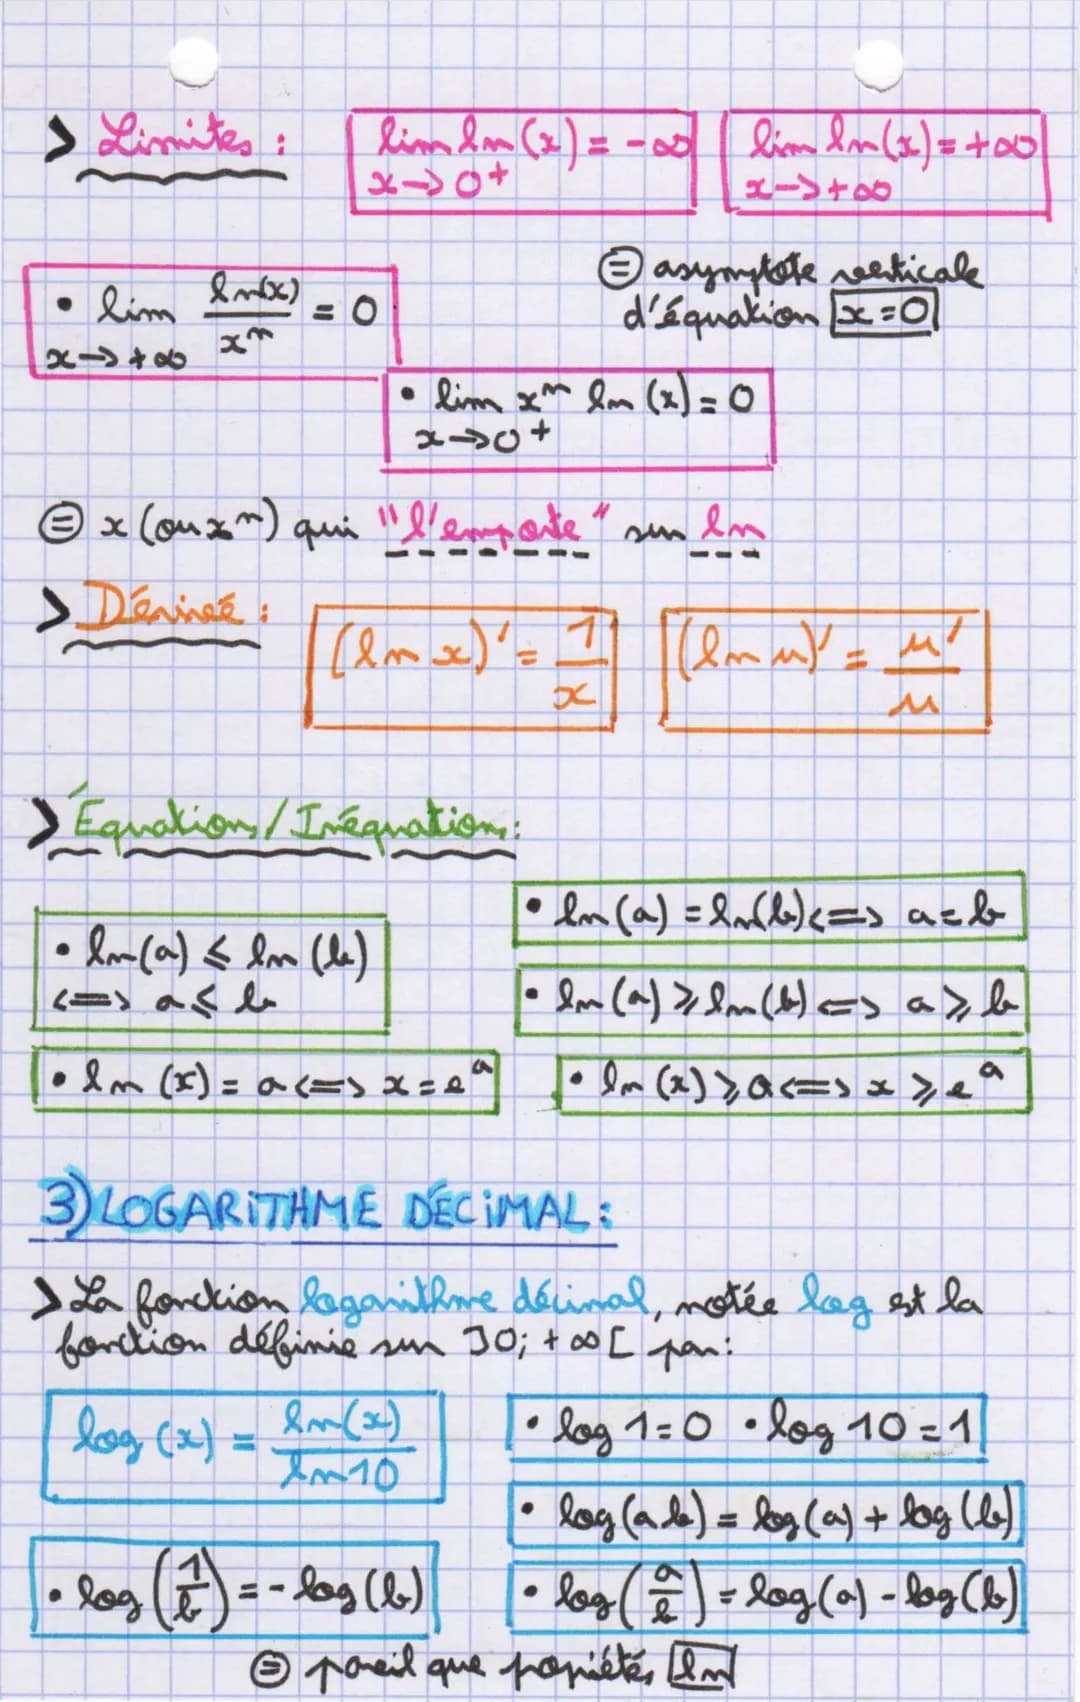 > Limites :
lim ln(x) = -∞
x->0+
lim ln(x) = +∞
x->+∞
⊜ asymptote verticale
d'équation x=0
• lim ln(x)/xⁿ = 0
x->+∞
• lim xⁿ ln(x) = 0
x->0+
⊜ x (ou xⁿ) qui "l'emporte" sur ln
> Dérivée :
(ln x)' = 1/x
(ln u)' = u'/u
> Équations/Inéquations:
• ln(a) = ln(b) <=> a=b
• ln(a) ⩽ ln(b)
<=> a ⩽ b
• ln(a) ⩾ ln(b) <=> a ⩾ b
• ln(x) = a <=> x = eᵃ
• ln(x) ⩾ a <=> x ⩾ eᵃ
3) LOGARiTHME DÉCiMAL :
> La fonction logarithme décimal, notée log est la
fonction définie sur ]0; +∞[ par:
log(x) = ln(x)/ln10
• log 1=0 • log 10=1
• log(ab) = log(a) + log(b)
• log(1/b) = -log(b)
• log(a/b) = log(a) - log(b)
⊜ pareil que propiétés ln